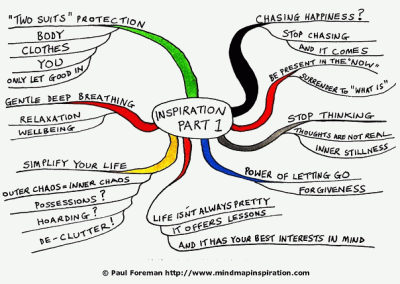 "TWO SUITS" PROTECTION
BODY
CLOTHES
YOU
ONLY LET GOOD IN
GENTLE DEEP BREATHING
RELAXATION
WELLBEING
SIMPLIFY YOUR LIFE
OUTER CHAOS = INNER CHAOS
POSSESSIONS?
HOARDING?
DE-CLUTTER!
INSPIRATION
PART 1
CHASING HAPPINESS?
STOP CHASING
AND IT COMES
BE PRESENT IN THE "NOW"
SURRENDER TO "WHAT IS"
STOP THINKING
THOUGHTS ARE NOT REAL
INNER STILLNESS
POWER OF LETTING GO
FORGIVENESS
LIFE ISN'T ALWAYS PRETTY
IT OFFERS LESSONS
AND IT HAS YOUR BEST INTERESTS IN MIND
© Paul Foreman http://www.mindmapinspiration.com